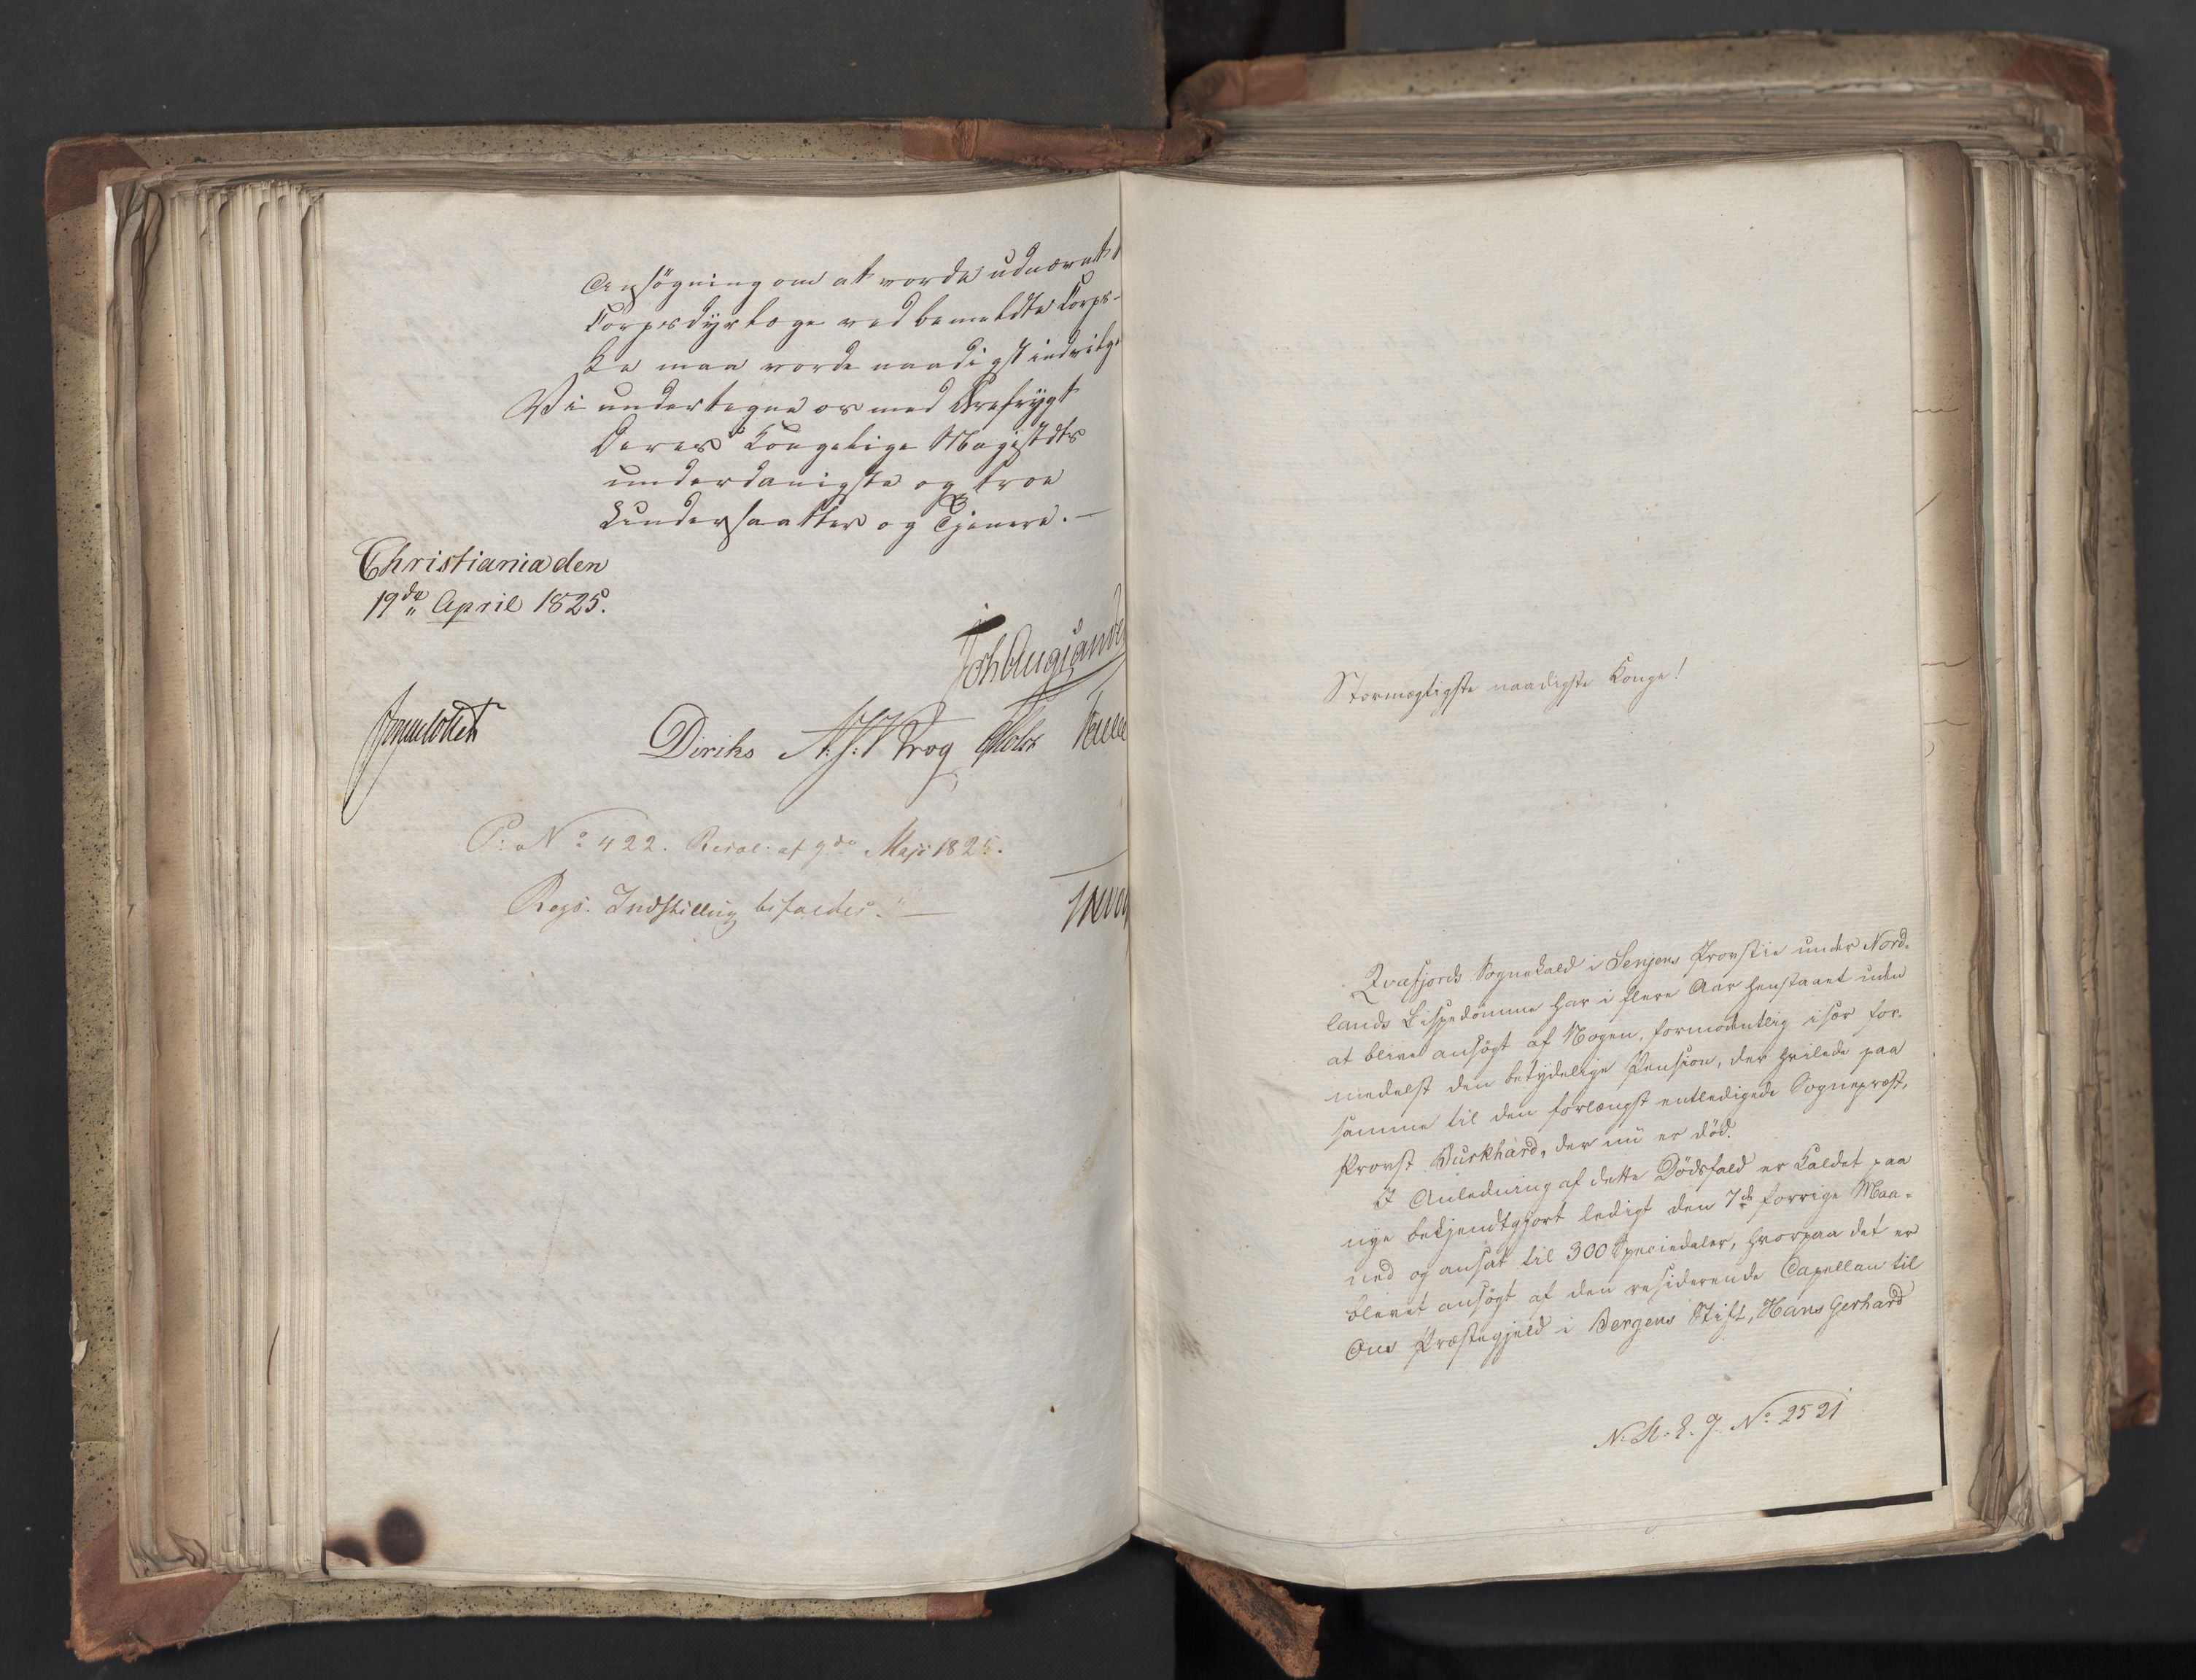 Ansøgning om at vorde udnævnt t
Corpsdyrlæge ved bemeldte Corps-
ke maa vorde naadigst indvilge
Vi undertegne os med Ærefrygt
Deres Kongelige Majestæts
underdanigste og troe
Undersaatter og Tjenere. —
Christiania den
19de April 1825.
Joh Aug Sande
Diriks
P: No 422. Resol: af 9de Maji 1825.
Regs. Indstilling bifaldes." —
Stormægtigste naadigste Konge!
Qvæfjords Sognekald i Senjens Provstie under Nord-
lands Bispedømme har i flere Aar henstaaet uden
at blive ansøgt af Nogen, formodentlig især for-
medelst den betydelige Pension, der hvilede paa
samme til den forlængst entledigede Sognepræst,
Provst Burkhard, der nu er død.
I Anledning af dette Dødsfald er Kaldet paa
nye bekjendtgjort ledigt den 7de forrige Maa-
ned og ansat til 300 Speciedaler, hvorpaa det er
blevet ansøgt af den residerende Capellan til
Ous Præstegjeld i Bergens Stift, Hans Gerhard
No 2521